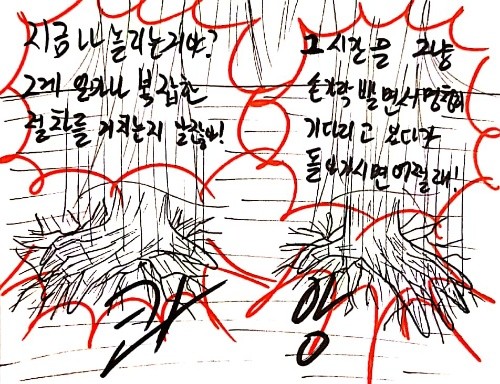 지금 나 놀리는거야?
그게 얼마나 복잡한
절차를 거치는지 알잖아!
그 시간을 그냥
손가락 빨면서 멍청히
기다리고
돌아가시면 어쩔래!
콰 앙